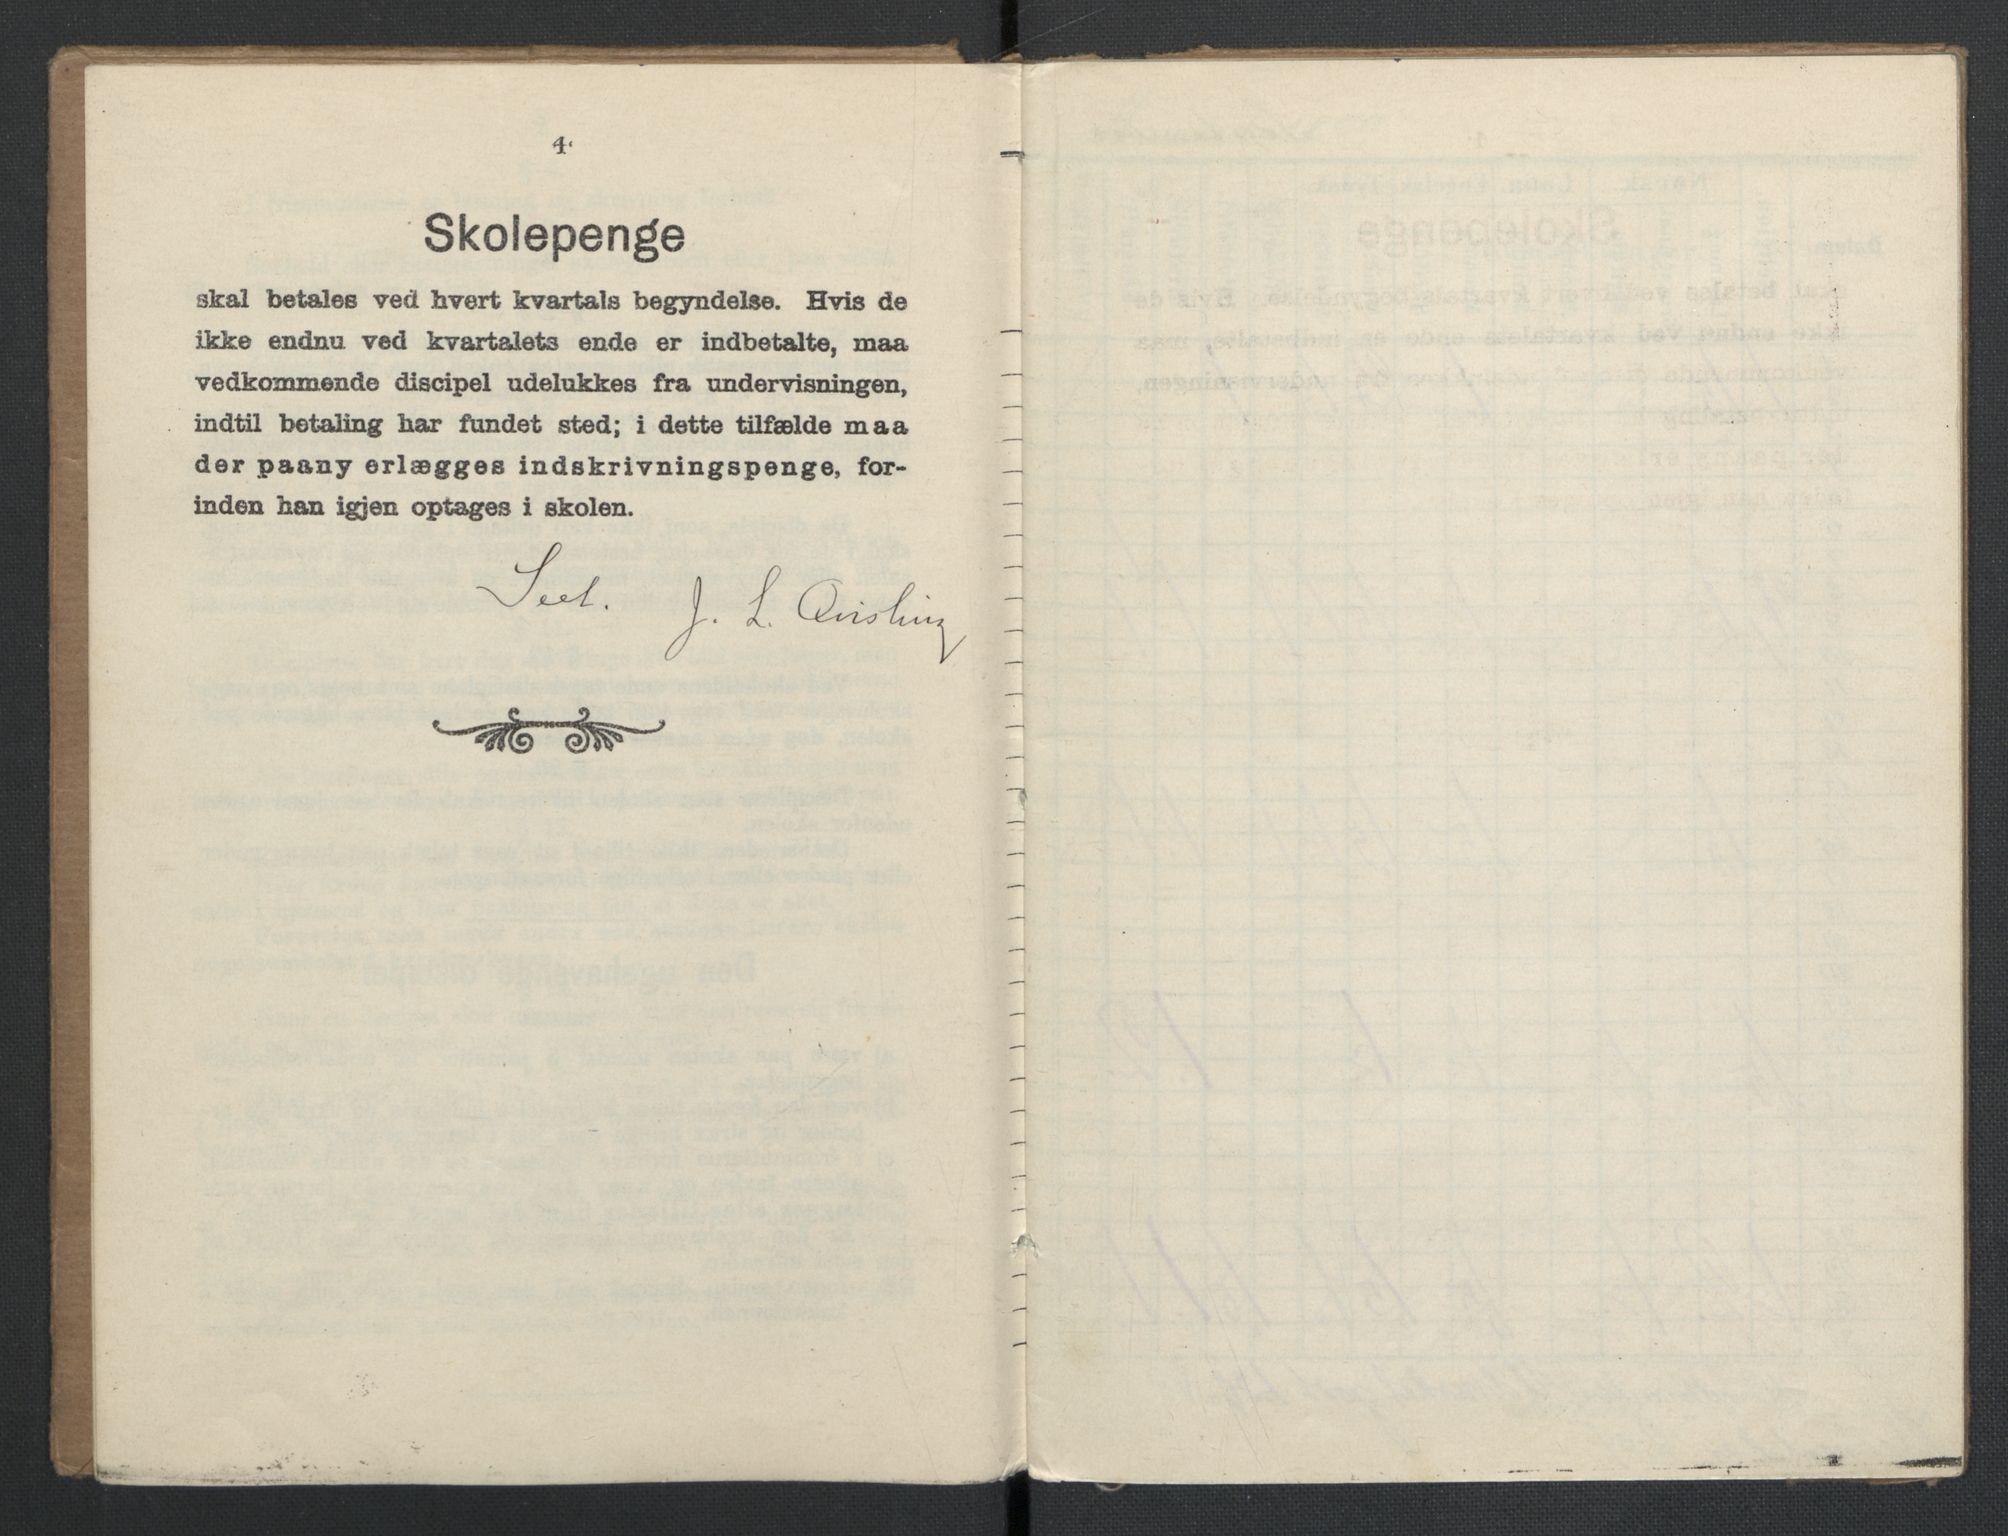 4
Skolepenge
skal betales ved hvert kvartals begyndelse. Hvis de
ikke endnu ved kvartalets ende er indbetalte, maa
vedkommende discipel udelukkes fra undervisningen,
indtil betaling har fundet sted; i dette tilfælde maa
der paany erlægges indskrivningspenge, for-
inden han igjen optages i skolen.
Seet. J. L. Qvisling